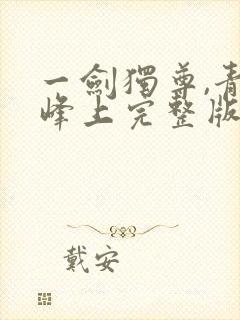 一劍獨尊,青
峰上完整版
戴安